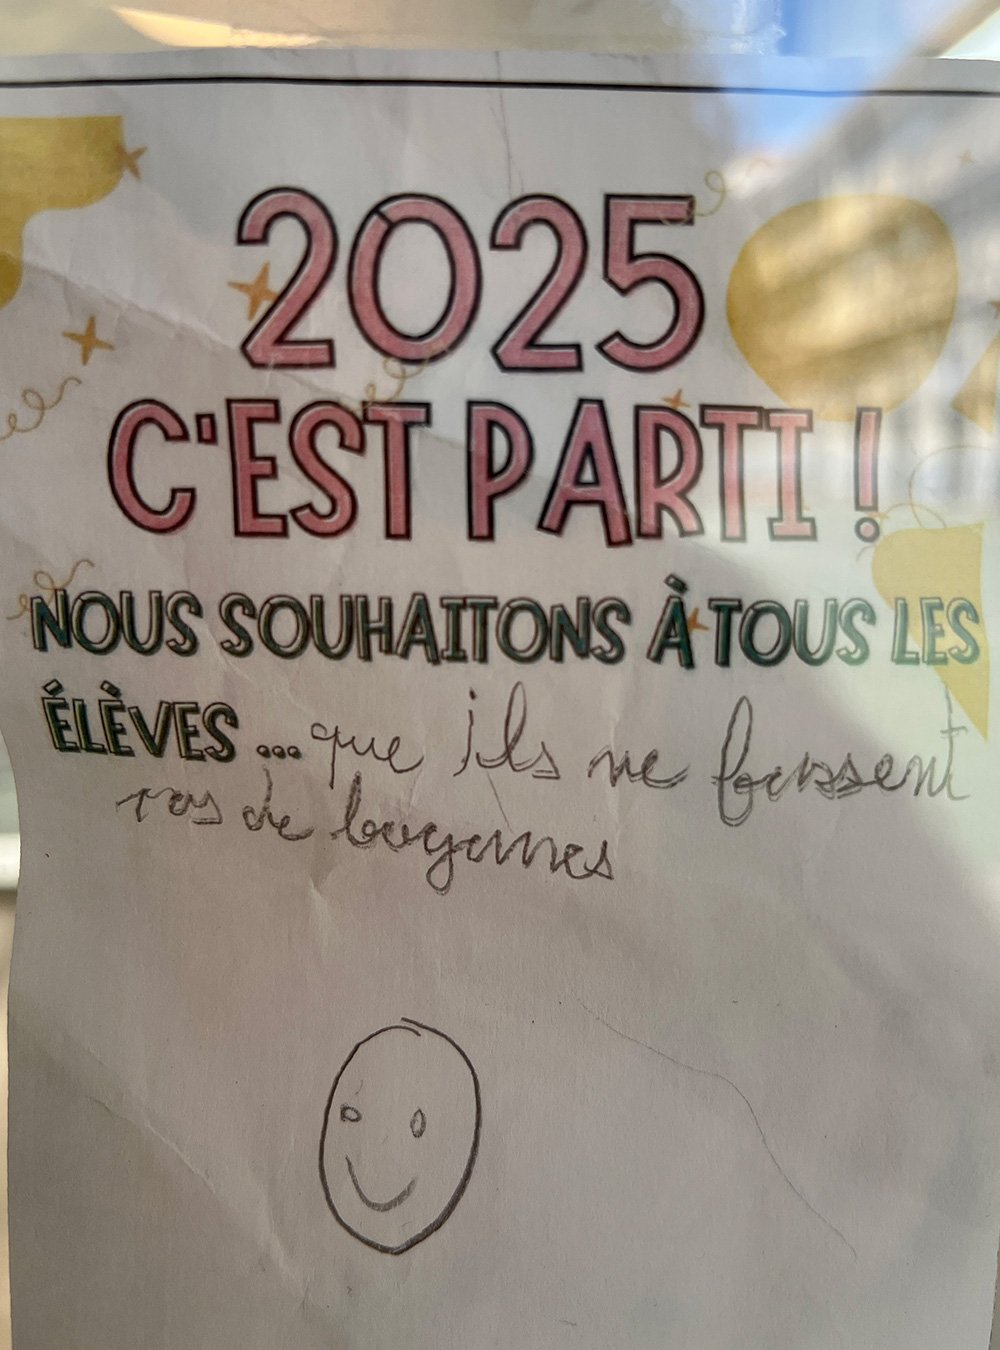 2025
C'EST PARTI !
NOUS SOUHAITONS À TOUS LES
ÉLÈVES ... que ils ne fassent
pas de bagarres